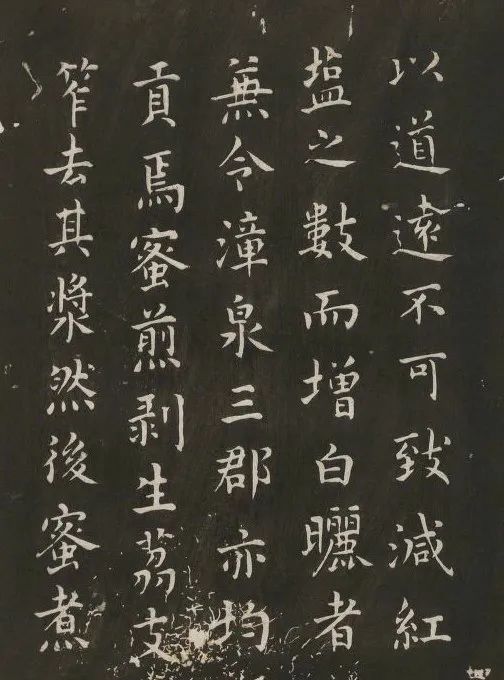 以道遠不可致減紅
塩之數而增白曬者
兼令漳泉三郡亦均
貢焉蜜煎剥生荔支
笮去其漿然後蜜煮